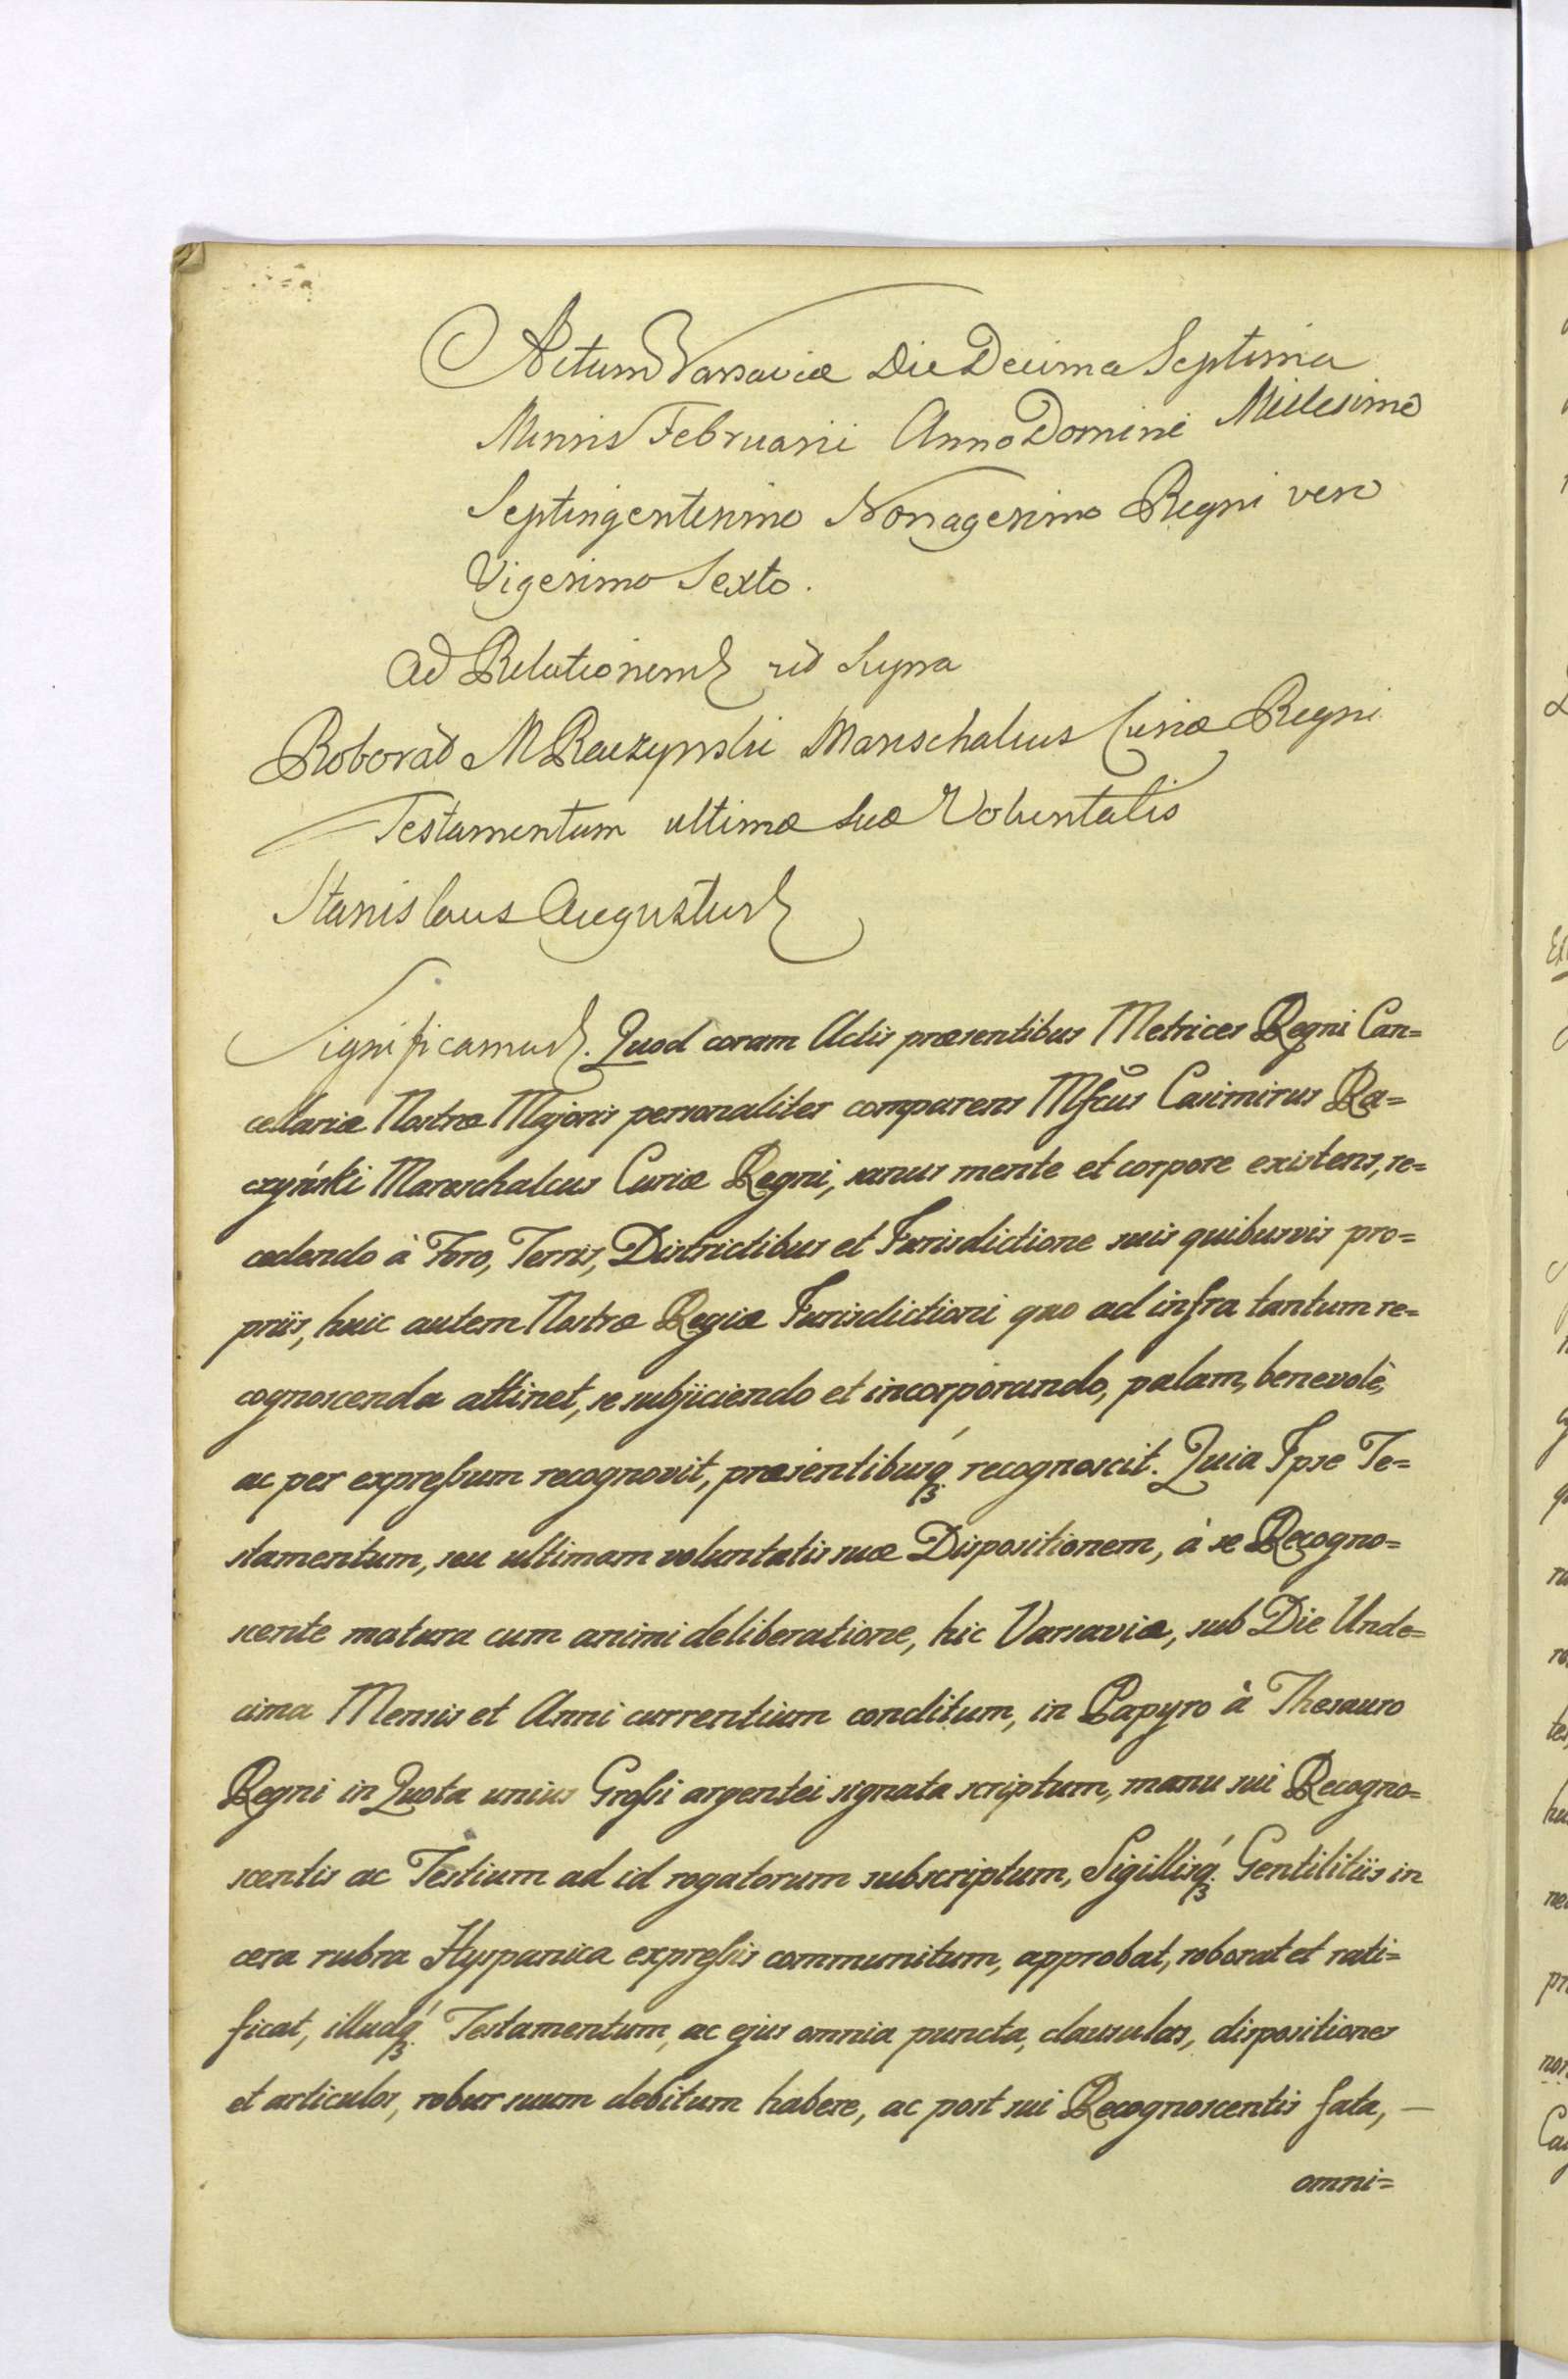 Actum Varsaviæ Die Decima Septima
Mensis Februarii Anno Domini Millesimo
Septingentesimo Nonagesimo Regni vero
Vigesimo Sexto.
Ad Relationem ut Supra
Roborat M Raczynski Marschalcus Curiæ Regni
Testamentum ultimæ suæ Voluntatis
Stanislaus Augustus
Significamus. Quod coram Actis præsentibus Metrices Regni Can=
cellariæ Nostræ Majoris personaliter comparens Mfcus Casimirus Ra=
czyński Mareschalcus Curiæ Regni, sanus mente et corpore existens, re=
cedendo à Foro, Terris, Districtibus et Jurisdictione suis quibusvis pro=
priis, huic autem Nostræ Regiæ Jurisdictioni quo ad infra tantum re=
cognoscenda attinet, se subjiciendo et incorporando, palam, benevolè,
ac per expreſsum recognovit, præsentibusq́ꝫ recognoscit. Quia Ipse Te=
stamentum, seu ultimam voluntatis suæ Dispositionem, à se Recogno=
scente matura cum animi deliberatione, hic Varsaviæ, sub Die Unde=
cima Mensis et Anni currentium conditum, in Papyro à Thesauro
Regni in Quota unius Groſsi argentei signata scriptum, manu sui Recogno=
scentis ac Testium ad id rogatorum subscriptum, Sigillisq́ꝫ Gentilitiis in
cera rubra Hyspanica expreſsis communitum, approbat, roborat et rati=
ficat, illudq́ꝫ Testamentum, ac ejus omnia puncta, clausulas, dispositiones
et articulos, robur suum debitum habere, ac post sui Recognoscentis fata, —
omni=